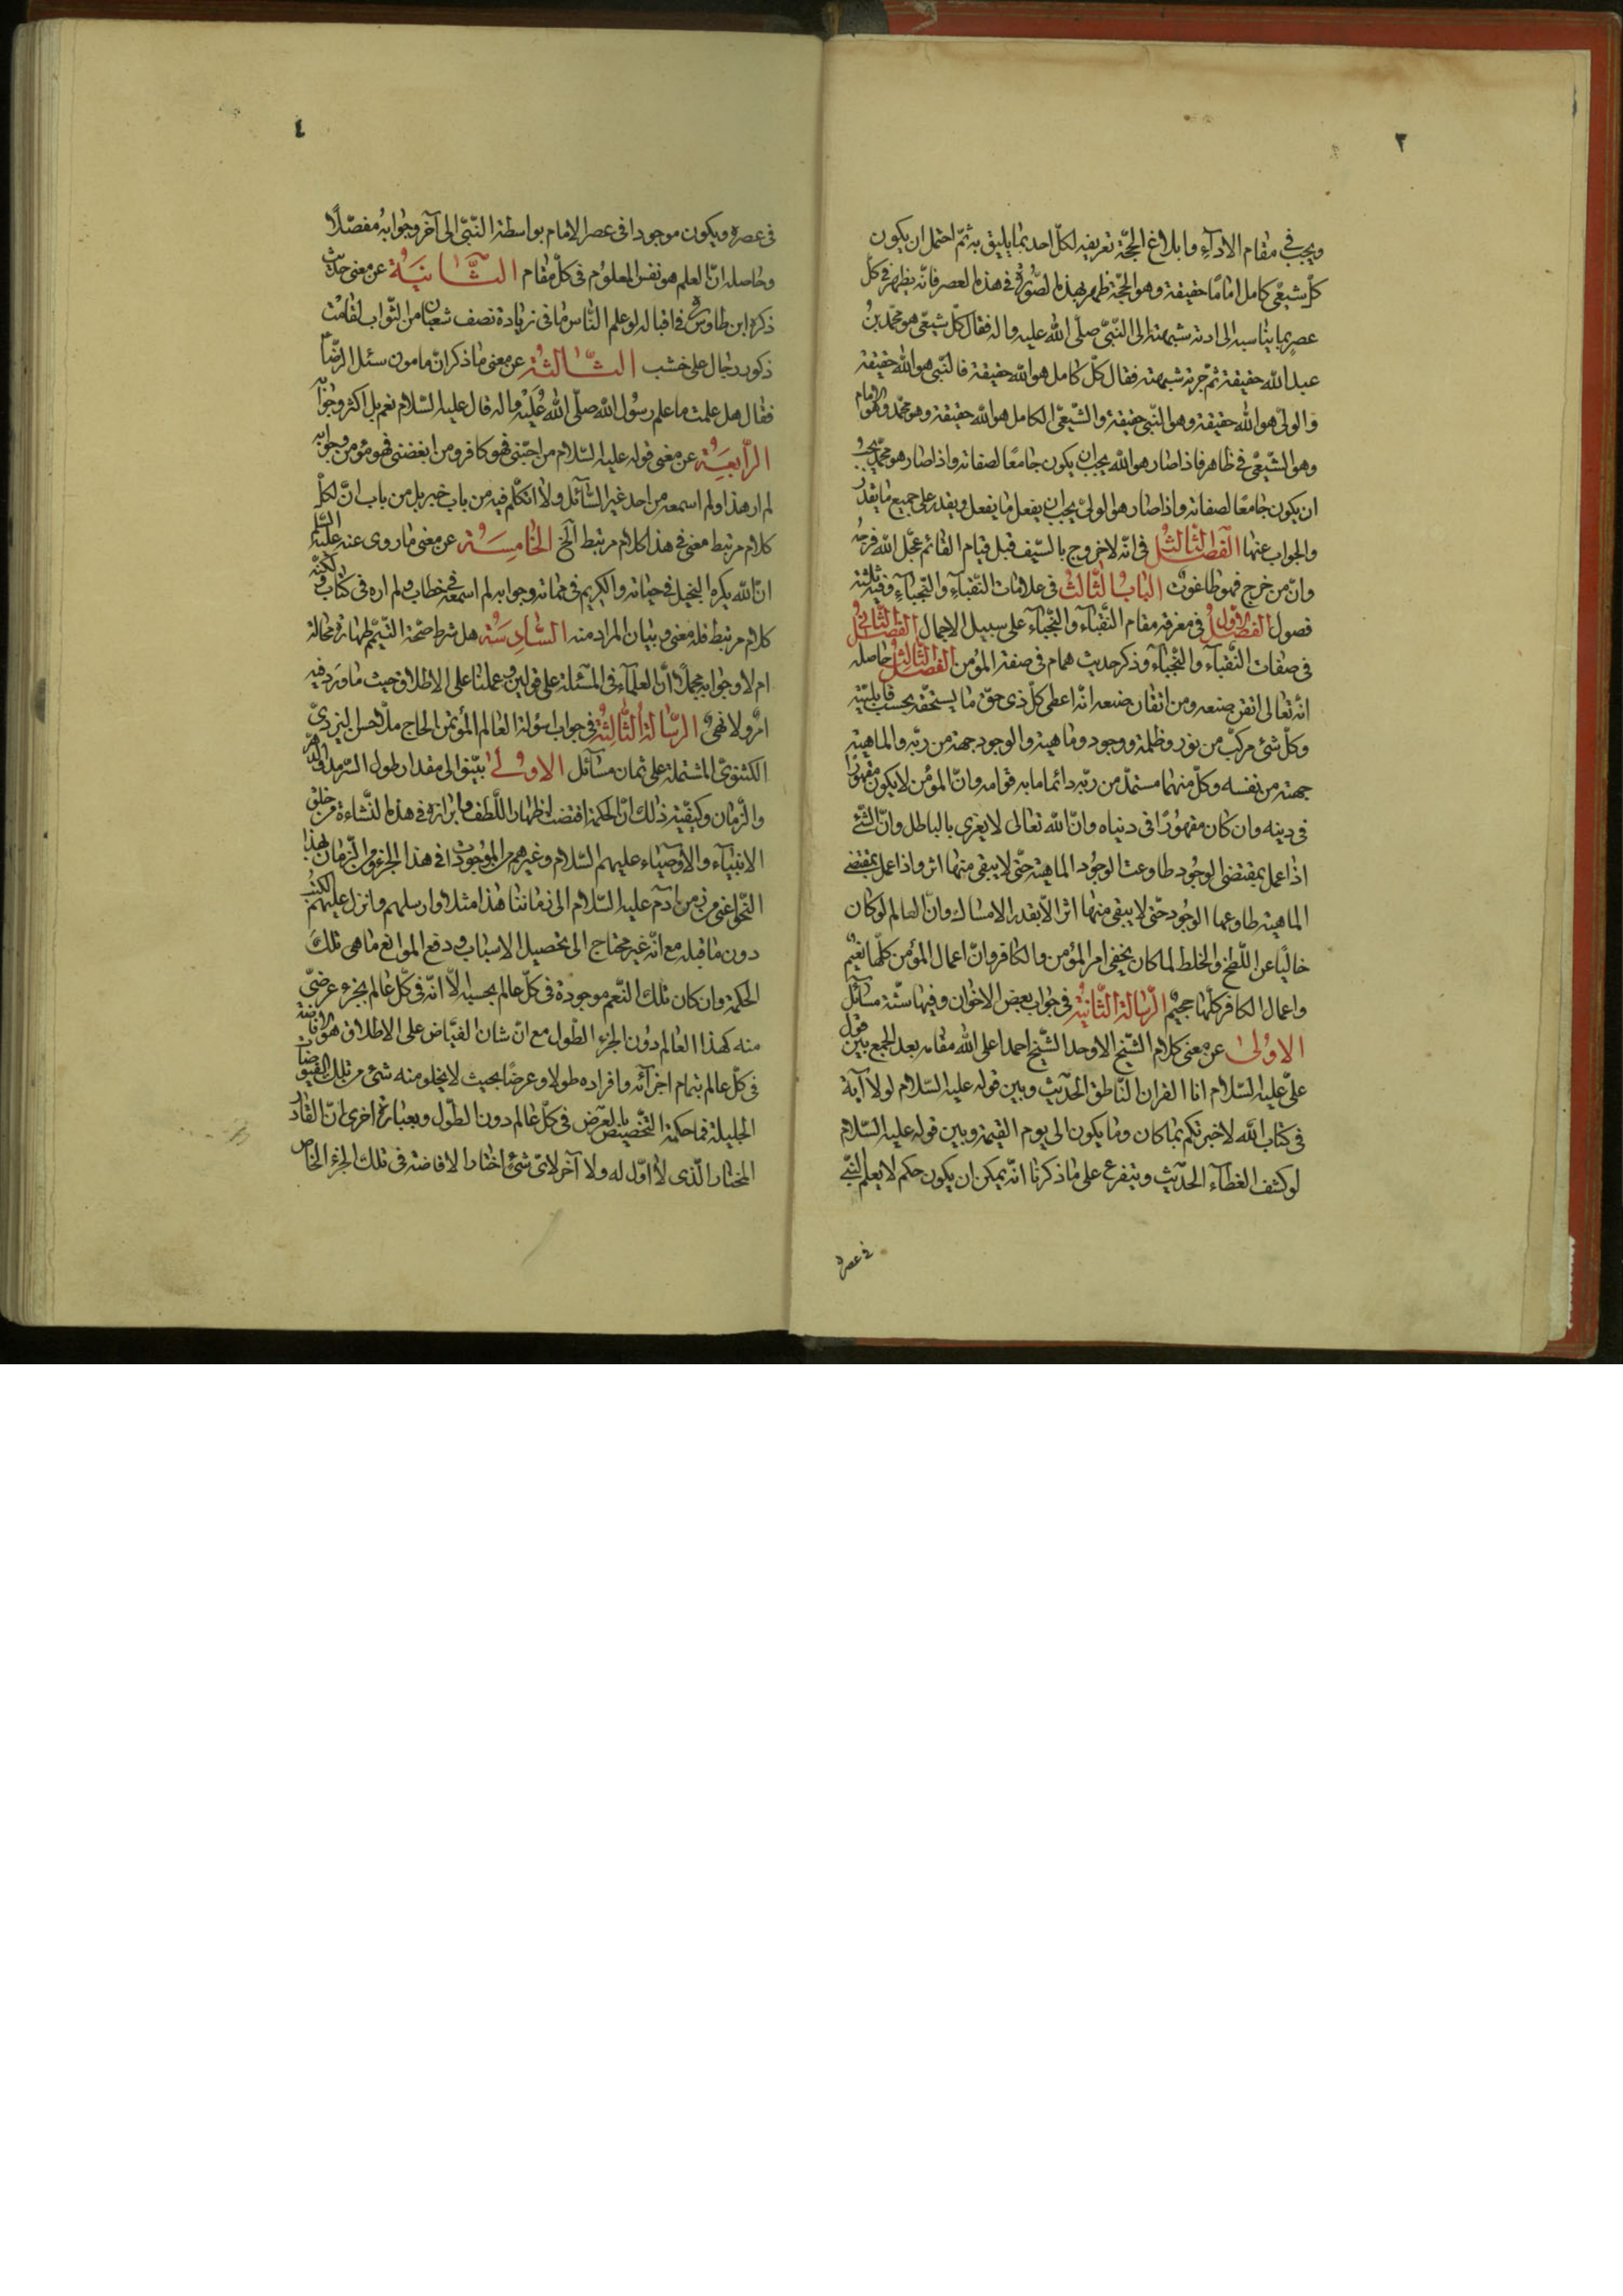 ٣
ويجب في مقام الاداۤء وابلاغ الحجّة تعريفه لكلّ احد بما يليق به ثمّ احتمل ان يكون
كلّ شيعىّ كامل امامًا حقيقة وهو الحجّة ظهر بهذه الصّورة في هذه العصر فانّه يظهر في كلّ
عصرٍ بما يناسبه الى ادته شبهته الى النّبىّ صلّى الله عليه واله فقال كلّ شيعّى هو محمّد بن
عبد الله حقيقة ثمّ جرته شبهته فقال كلّ كامل هو الله حقيقة فالنّبى هو الله حقيقة
والولىّ هو الله حقيقة وهو النّبى حقيقة والشّيعّى الكامل هو الله حقيقة وهو محمّد وهو الامام
وهو الشّيعّى في ظاهر فاذا صار هو الله يجب ان يكون جامعًا لصفاته واذا صار هو محمّد يجب
ان يكون جامعًا لصفاته واذا صار هو الولىّ يجب ان يفعل ما يفعل ويقدر على جميع ما يقدر
والجواب عنها الفصل الثّالث في انّه لا خروج بالسّيف قبل قيام القائم عجّل الله فرجه
وانّ من خرج فهو طاغوت الباب الثّالث في علامات النّقباۤء والنّجباۤء وفيه ثلثة
فصول الفصل الاوّل في معرفة مقام النّقباۤء والنّجباۤء على سبيل الاجمال الفصل الثّانى
في صفات النّقباۤء والنّجباۤء وذكر حديث همام في صفة المؤمن الفصل الثّالث حاصله
انّه تعالى اتقن صنعه ومن اتقان صنعه انّه اعطى كلّ ذى حقّ ما يستحقّه بحسب قابليّته
وكلّ شئ مركّب من نور وظلمة ووجود وماهية والوجود جهته من ربّه والماهية
جهته من نفسه وكلّ منهما مستمدّ من ربّه دائما ما به قوامه وانّ المؤمن لا يكون مقهورًا
في دينه وان كان مقهورًا في دنياه وانّ الله تعالى لا يغرى بالباطل وانّ الشّئ
اذا عمل بمقتضى الوجود طاوعت الوجود الماهية حتّى لا يبقى منها اثر واذا عمل بمقتضى
الماهية طاوعها الوجود حتّى لا يبقى منها اثر الّا بقدر الامساك وانّ العالم لو كان
خاليًا عن اللّطخ والخلط لما كان يخفى امر المؤمن والكافر وانّ اعمال المؤمن كلّها نعيم
واعمال الكافر كلّها جحيم الرّسالة الثّانية في جواب بعض الاخوان وفيها ستّة مساۤئل
الاولى عن معنى كلام الشّيخ الاوحد الشّيخ احمد اعلى الله مقامه بعد الجمع بين قول
علىّ عليه السّلام انا القران النّاطق الحديث وبين قوله عليه السّلام لولا اۤية
في كتاب الله لاخبرتكم بما كان وما يكون الى يوم القيمة وبين قوله عليه السّلام
لو كشف الغطاۤء الحديث ويتفرع على ما ذكرنا انّه يمكن ان يكون حكم لا يعلم النّبى
في عصره
٤
في عصره ويكون موجودا في عصر الامام بواسطة النّبىّ الى آخر وجوابه مفصّلًا
وحاصله انّ العلم هو نفس المعلوم في كلّ مقام الثّانية عن معنى حديث
ذكره ابن طاوس في اقباله لو علم النّاس ما في زيادة نصف شعبان من الثّواب لقامت
ذكور رجال على خشب الثّالثة عن معنى ما ذكر انّ مامون سئل الرّضا
فقال هل علمت ما علم رسول الله صلّى الله عليه واله قال عليه السّلام نعم بل اكثر وجوابه
الرّابعة عن معنى قوله عليه السّلام من احبّنى فهو كافر ومن ابغضنى فهو مؤمن وجوابه
لم ار هذا ولم اسمعه من احد غير السّاۤئل ولا اتكلّم فيه من باب خبر بل من باب انّ لكلّ
كلام مرتبط معنى في هذا كلام مرتبط الخ الخامسة عن معنى ما روى عنه عليه السّلام
انّ الله يكره البخيل في حياته والكريم في مماته وجوابه لم اسمعه في خطاب ولم اره في كتاب ولكنّه
كلام مرتبط فله معنى وبيان المراد منه السّادسة هل شرط صحّة التّيمّم طهارة محاله
ام لا وجوابه مجملًا انّ العلماۤء في المسئلة على قولين وعملنا على الاطلاق حيث ما ورد فيه
امر ولا نهى الرّسالة الثّالثة في جواب اسولة العالم المؤتمن الحاج ملّا حسن اليزدىّ
الكثنوىّ المشتملة على ثمان مساۤئل الاولى بيّنوا لى مقدار طول السّرمد والدّهر
والزّمان وكيفيّته ذلك انّ الحكمة اقتضت اظهار اللّطف وابرازه في هذه النّشاءة من خلق
الانبياۤء والاوصياء عليهم السّلام وغيرهم من الموجودات في هذا الجزء من الزّمان بهذا
النّحو اعنى من زمن آدم عليه السّلام الى زماننا هذا مثلا وارسلهم وانزل عليهم الكتب
دون ما قبله مع انّه غير محتاج الى تحصيل الاسباب ودفع الموانع ما هى تلك
الحكمة وان كان تلك النّعم موجودة في كلّ عالم بحسبه الّا انّه في كلّ عالم بجزء عرضىّ
منه كهذا العالم دون الجزء الطّول مع انّ شان الفيّاض على الاطلاق هو الافاضة
في كلّ عالم بتمام اجزاۤئه وافراده طولا وعرضًا بحيث لا يخلو منه شئ من تلك الفيوضات
الجليلة فما حكمة التّخصيص بالعرض في كلّ عالم دون الطّول وبعبارة اخرى انّ القادر
المختار الّذى لا اوّل له ولا آخر لاىّ شئ اختار الافاضة في تلك الجزء الخاص